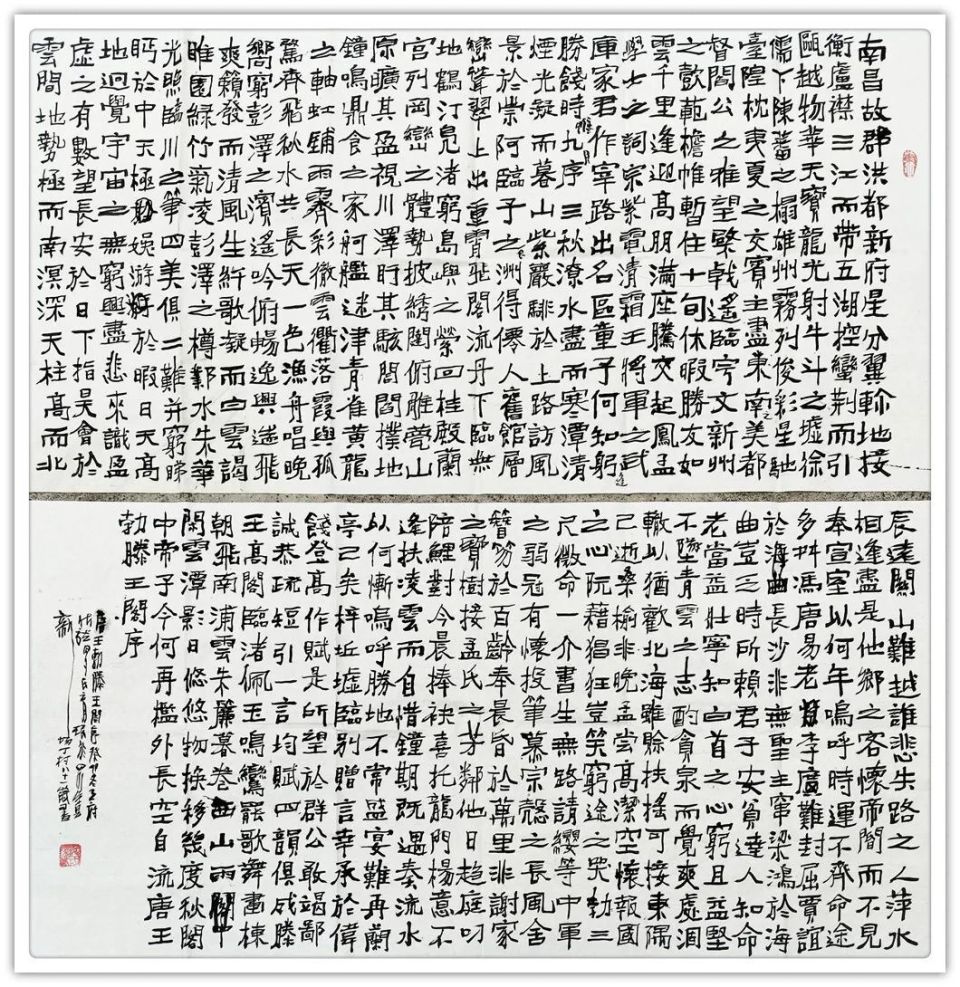 南昌故郡洪都新府星分翼軫地接
衡廬襟三江而帶五湖控蠻荊而引
甌越物華天寶龍光射牛斗之墟徐
儒下陳蕃之榻雄州霧列俊彩星馳
臺隍枕夷夏之交賓主盡東南之美都
督閻公之雅望棨戟遙臨宇文新州
之懿範襜帷暫住十旬休暇勝友如
雲千里逢迎高朋滿座騰交起鳳孟
學士之詞宗紫電清霜王將軍之武
庫家君作宰路出名區童子何知躬逢
勝餞時維九月序三秋潦水盡而寒潭清
煙光凝而暮山紫儼騑於上路訪風
景於崇阿臨子之長洲得僊人舊館層
巒聳翠上出重霄飛閣流丹下臨無
地鶴汀鳧渚窮島嶼之縈回桂殿蘭
宮列岡巒之體勢披繡闥俯雕甍山
原曠其盈視川澤盱其駭閭閻撲地
鐘鳴鼎食之家舸艦迷津青雀黃龍
之軸虹銷雨霽彩徹雲衢落霞與孤
驚齊飛秋水共長天一色漁舟唱晚
嚮窮彭澤之濱遙吟俯暢逸興遄飛
爽籟發而清風生纖歌凝而白雲遏
睢園綠竹氣凌彭澤之樽鄴水朱華
光照臨川之筆四美俱二難并窮睇
眄於中天極娛游於暇日天高
地迥覺宇宙之無窮興盡悲來識盈
虛之有數望長安於日下指吳會於
雲間地勢極而南溟深天柱高而北
辰遠關山難越誰悲失路之人萍水
相逢盡是他鄉之客懷帝閽而不見
奉宣室以何年嗚呼時運不齊命途
多舛馮唐易老李廣難封屈賈誼
於海曲長沙非無聖主竄梁鴻於海
曲豈乏時所賴君子安貧達人知命
老當益壯寧知白首之心窮且益堅
不墜青雲之志酌貪泉而覺爽處涸
轍以猶歡北海雖賒扶搖可接東隅
已逝桑榆非晚孟嘗高潔空懷報國
之心阮藉猖狂豈笑窮途之哭勃三
尺微命一介書生無路請纓等中軍
之弱冠有懷投筆慕宗愨之長風舍
簪笏於百齡奉晨昏於萬里非謝家
之寶樹接孟氏之芳鄰他日趨庭叨
陪鯉對今晨捧袂喜托龍門楊意不
逢扶凌雲而自惜鐘期既遇奏流水
以何慚嗚呼勝地不常盛宴難再蘭
亭已矣梓丘墟臨別贈言幸承於偉
餞登高作賦是所望於群公敢竭鄙
誠恭疏短引一言均賦四韻俱成滕
王高閣臨渚佩玉鳴鸞罷歌舞畫棟
朝飛南浦雲朱簾暮卷西山雨閣中
閑雲潭影日悠悠物換移幾度秋閣
中帝子今何再檻外長空自流唐王
勃滕王閣序